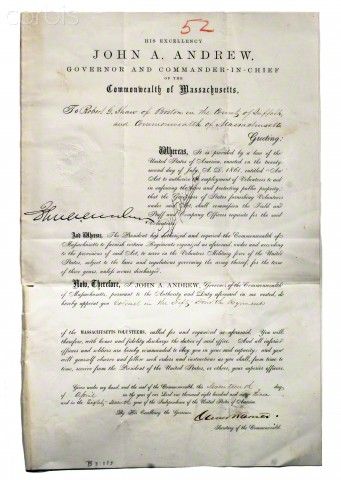 corbis
52
HIS EXCELLENCY
JOHN A. ANDREW,
GOVERNOR AND COMMANDER-IN-CHIEF
OF THE
Commonwealth of Massachusetts,
To Robert G. Shaw of Boston in the County of Suffolk
and Commonwealth of Massachusetts
Greeting:
Whereas, It is provided by a law of the
United States of America, enacted on the twenty-
second day of July, A.D. 1861, entitled "An
Act to authorize the employment of Volunteers to aid
in enforcing the laws and protecting public property,"
that the Governors of States furnishing Volunteers
under said Act, shall commission the Field and
Staff and Company Officers requisite for the said
Volunteers:
And Whereas, The President has authorized and required the Commonwealth of
Massachusetts to furnish certain Regiments organized as aforesaid, under and according
to the provisions of said Act, to serve in the Volunteer Military force of the United
States, subject to the laws and regulations governing the army thereof for the term
of three years unless sooner discharged.
Now, Therefore, I JOHN A ANDREW, Governor of the Commonwealth
of Massachusetts, pursuant to the Authority and Duty aforesaid in me vested, do
hereby appoint you Colonel in the Fifty Fourth Regiment
OF THE MASSACHUSETTS VOLUNTEERS, called for and required as aforesaid. You will
therefore, with honor and fidelity discharge the duties of said office. And all inferior
officers and soldiers are hereby commanded to obey you in your said capacity, and you
will yourself observe and follow such orders and instructions as you shall, from time to
time, receive from the President of the United States, or others, your superior officers.
Given under my hand and the seal of the Commonwealth, this Seventeenth day
of April in the year of our Lord one thousand eight hundred and sixty Three
and in the Eighty-Seventh year of the Independence of the United States of America.
By His Excellency the Governor,
Secretary of the Commonwealth.